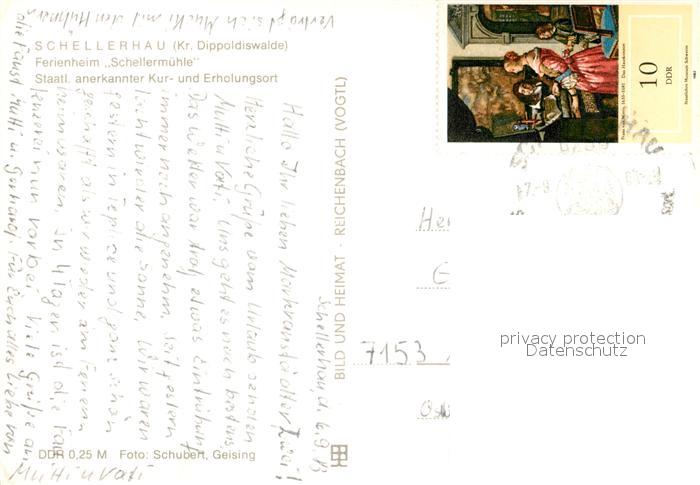 SCHELLERHAU (Kr. Dippoldiswalde)
Ferienheim „Schellermühle"
Staatl. anerkannter Kur- und Erholungsort
Schellerhau, d. 6.9.83
Hallo Ihr lieben Markranstädter Zwei!
Herzliche Grüße vom Urlaub senden
Mutti u. Vati. Uns geht es noch bestens,
Das Wetter war trotz etwas Eintrübung
immer noch angenehm, seit gestern
lacht wieder die Sonne. Wir waren
gestern in Teplitz und ganz schön
geschafft als wir wieder im Ferien-
heim waren. In 4 Tagen ist die
nun vorbei. Viele Grüße an
Mutti u. Gerhard. Für Euch alles Liebe von
Mutti u. Vati
mit den Hühnern
DDR 0,25 M Foto: Schubert, Geising
BILD UND HEIMAT · REICHENBACH (VOGTL)
10
DDR
Das Hauskonzert
Staatliches Museum Schwerin
7153
privacy protection
Datenschutz